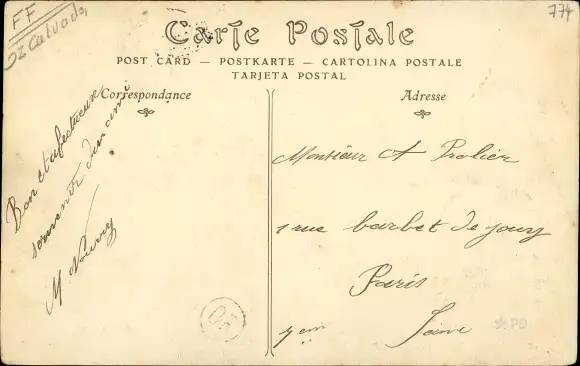 FF
SZ Calvados
774
Carte Postale
POST CARD — POSTKARTE — CARTOLINA POSTALE
TARJETA POSTAL
Correspondance
Adresse
Bon et afectueux
souvenir d'un ami
M
Monsieur A Prolier
1 rue barbet de jouy
Paris
7 em Seine
OR
PD